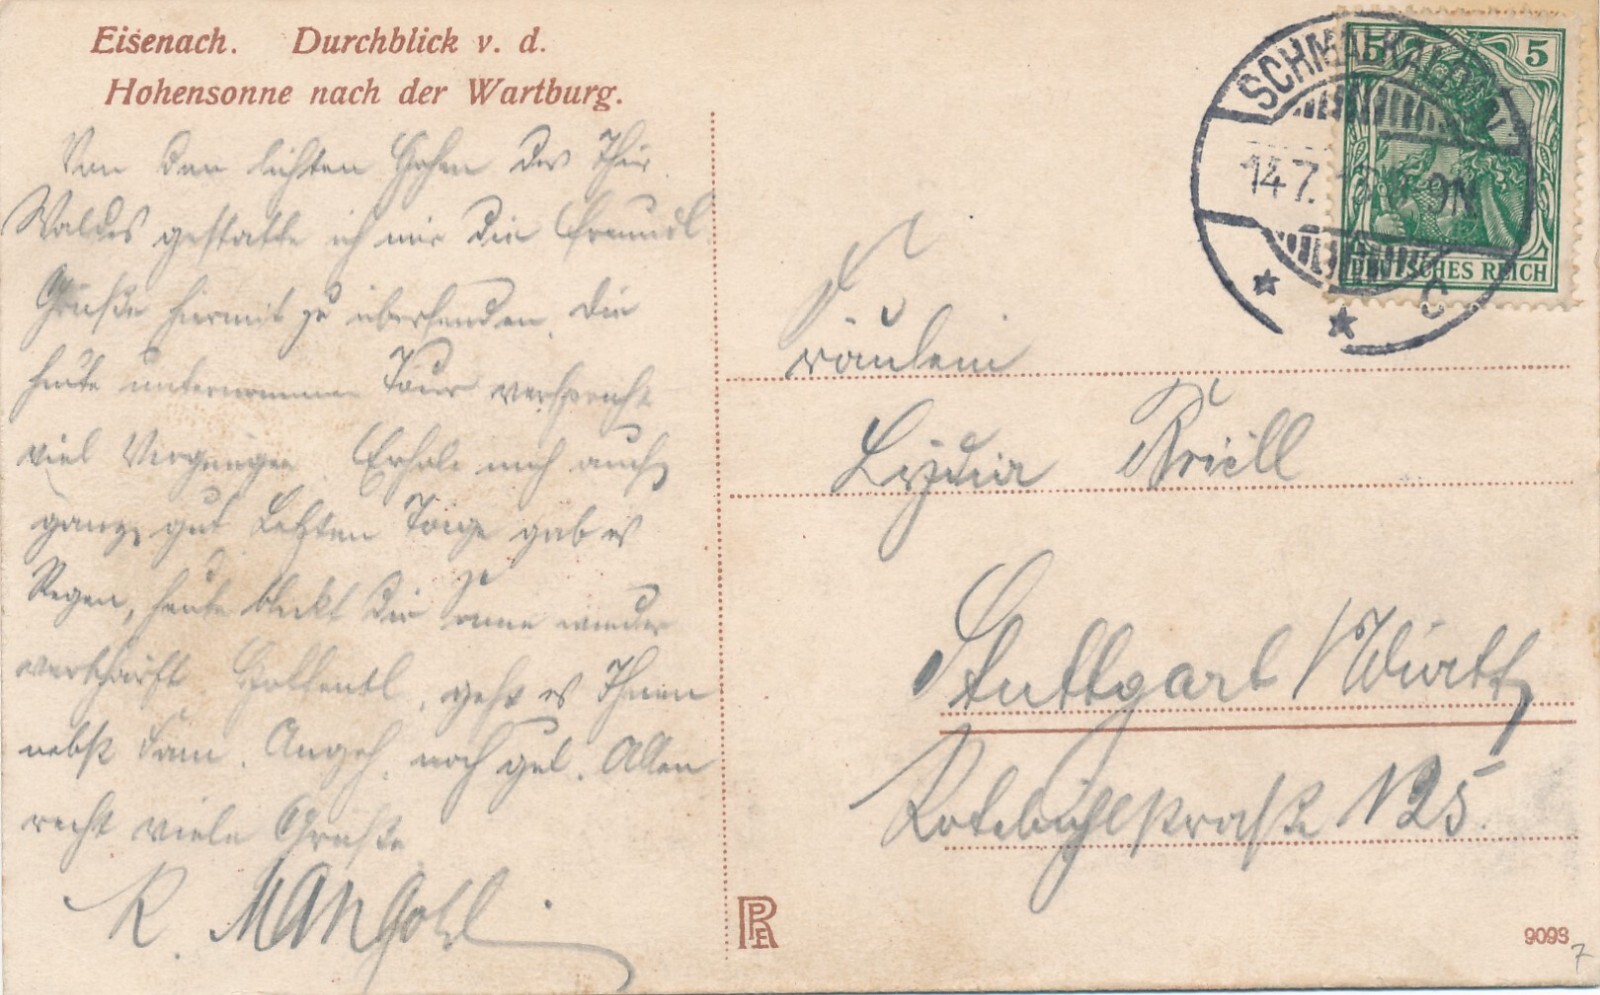 Eisenach. Durchblick v. d.
Hohensonne nach der Wartburg.
Von den lichten Höhen des Thür.
Waldes gestatte ich mir die freundl.
Grüße hiermit zu übersenden. Die
heute unternommene Tour verspricht
viel Vergnügen. Erhole mich auch
ganz gut. Letzten Tage gab es
Regen, heute blickt die Sonne wieder
Hoffentl. geht es Ihnen
nebst Fam. Angeh. noch gut. Allen
recht viele Grüße
R. Mangold
SCHMALKALDEN
14 7. 9N.
C
5 5
DEUTSCHES REICH
Fräulein
Lydia
Stuttgart / Württ
Rotebühlstraße
RPE
9093
7